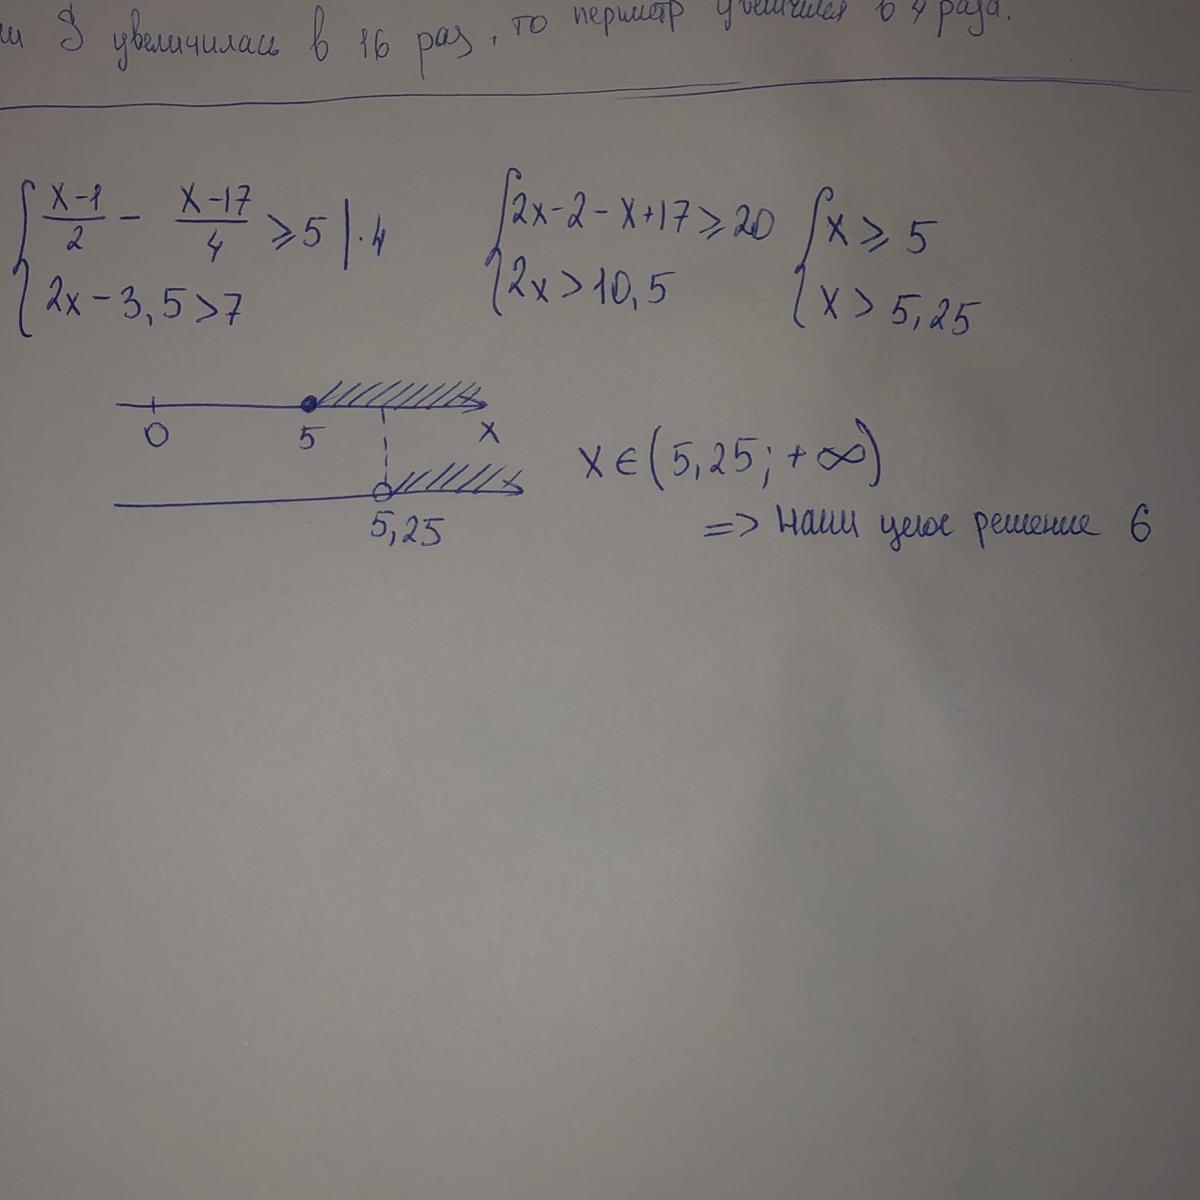 S увеличилась в 16 раз, то периметр увеличился в 4 раза.
{ (x-1)/2 - (x-17)/4 ⩾ 5 | ·4
2x - 3,5 > 7
{ 2x - 2 - x + 17 ⩾ 20
2x > 10,5
{ x ⩾ 5
x > 5,25
0 5 x
5,25
x ∈ (5,25; +∞)
=> наим целое решение 6